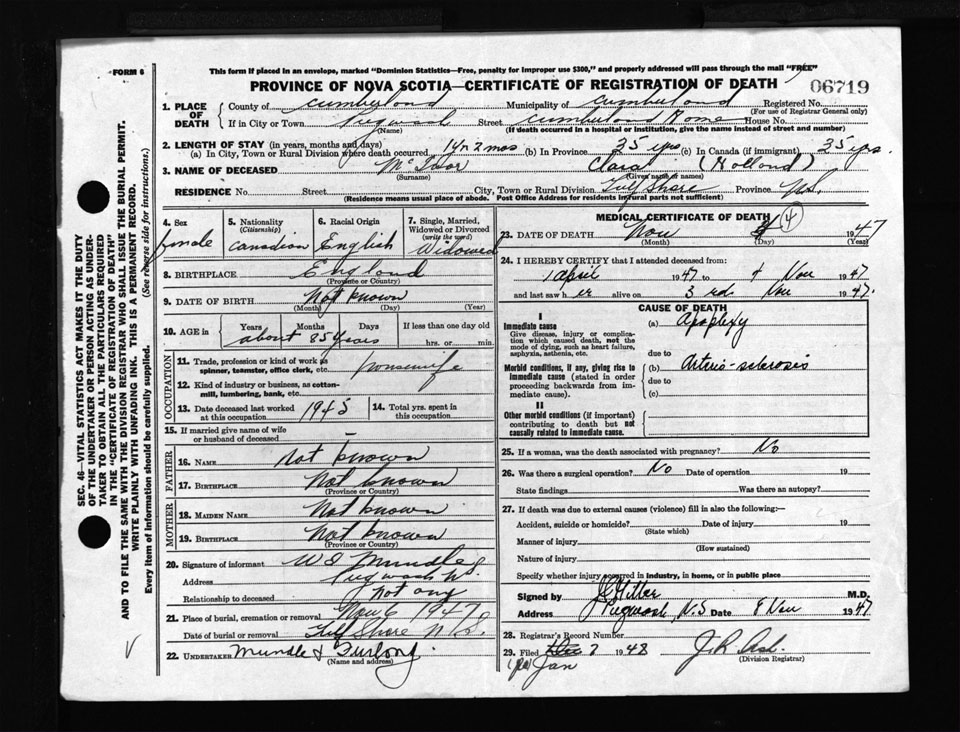 FORM 6
This form if placed in an envelope, marked "Dominion Statistics—Free, penalty for improper use $300," and properly addressed will pass through the mail "FREE"
PROVINCE OF NOVA SCOTIA—CERTIFICATE OF REGISTRATION OF DEATH
06719
1. PLACE OF DEATH
County of Cumberland Municipality of Cumberland Registered No.
(For use of Registrar General only)
If in City or Town Pugwash Street Cumberland Home House No.
(Name) (If death occurred in a hospital or institution, give the name instead of street and number)
2. LENGTH OF STAY (in years, months and days)
(a) In City, Town or Rural Division where death occurred 1 yr 2 mos (b) In Province 35 yrs (c) In Canada (if immigrant) 35 yrs.
3. NAME OF DECEASED McIvor Clara (Holland)
(Surname) (Given name or names)
RESIDENCE No. Street City, Town or Rural Division Gulf Shore Province N.S.
(Residence means usual place of abode. Post Office Address for residents in rural parts not sufficient)
4. Sex
female
5. Nationality
(Citizenship)
Canadian
6. Racial Origin
English
7. Single, Married, Widowed or Divorced
(write the word)
Widowed
8. BIRTHPLACE England
(Province or Country)
9. DATE OF BIRTH Not known
(Month) (Day) (Year)
10. AGE in Years Months Days If less than one day
about 85 years hrs. or min.
OCCUPATION
11. Trade, profession or kind of work as spinner, teamster, office clerk, etc. housewife
12. Kind of industry or business, as cotton-mill, lumbering, bank, etc.
13. Date deceased last worked at this occupation 1945
14. Total yrs. spent in this occupation
15. If married give name of wife or husband of deceased —
FATHER
16. NAME Not known
17. BIRTHPLACE Not known
(Province or Country)
MOTHER
18. MAIDEN NAME Not known
19. BIRTHPLACE Not known
(Province or Country)
20. Signature of informant Mundle
Address Pugwash
Relationship to deceased not any
21. Place of burial, cremation or removal Nov 6 1947
Date of burial or removal Gulf Shore N.S.
22. UNDERTAKER Mundle & Furlong
(Name and address)
MEDICAL CERTIFICATE OF DEATH
23. DATE OF DEATH Nov 4 1947
(Month) (Day) (Year)
24. I HEREBY CERTIFY that I attended deceased from:
1 April 1947 to 4 Nov 1947
and last saw her alive on 3rd Nov 1947.
CAUSE OF DEATH
I
Immediate cause
Give disease, injury or complication which caused death, not the mode of dying, such as heart failure, asphyxia, asthenia, etc.
(a) Apoplexy
due to
Morbid conditions, if any, giving rise to immediate cause (stated in order proceeding backwards from immediate cause).
(b) Arterio-sclerosis
due to
(c)
II
Other morbid conditions (if important) contributing to death but not causally related to immediate cause.
25. If a woman, was the death associated with pregnancy? No
26. Was there a surgical operation? No Date of operation 19
State findings Was there an autopsy?
27. If death was due to external causes (violence) fill in also the following:—
Accident, suicide or homicide? Date of injury 19
(State which)
Manner of injury
(How sustained)
Nature of injury
Specify whether injury occurred in industry, in home, or in public place
Signed by M.D.
Address Pugwash, N.S Date Nov 1947
28. Registrar's Record Number
29. Filed Dec 7 1948 J.R. Ash.
Jan (Division Registrar)
SEC. 46—VITAL STATISTICS ACT MAKES IT THE DUTY
OF THE UNDERTAKER OR PERSON ACTING AS UNDER-
TAKER TO OBTAIN ALL THE PARTICULARS REQUIRED
IN THE "CERTIFICATE OF REGISTRATION OF DEATH"
AND TO FILE THE SAME WITH THE DIVISION REGISTRAR WHO SHALL ISSUE THE BURIAL PERMIT.
WRITE PLAINLY WITH UNFADING INK. THIS IS A PERMANENT RECORD.
Every item of information should be carefully supplied. (See reverse side for instructions.)